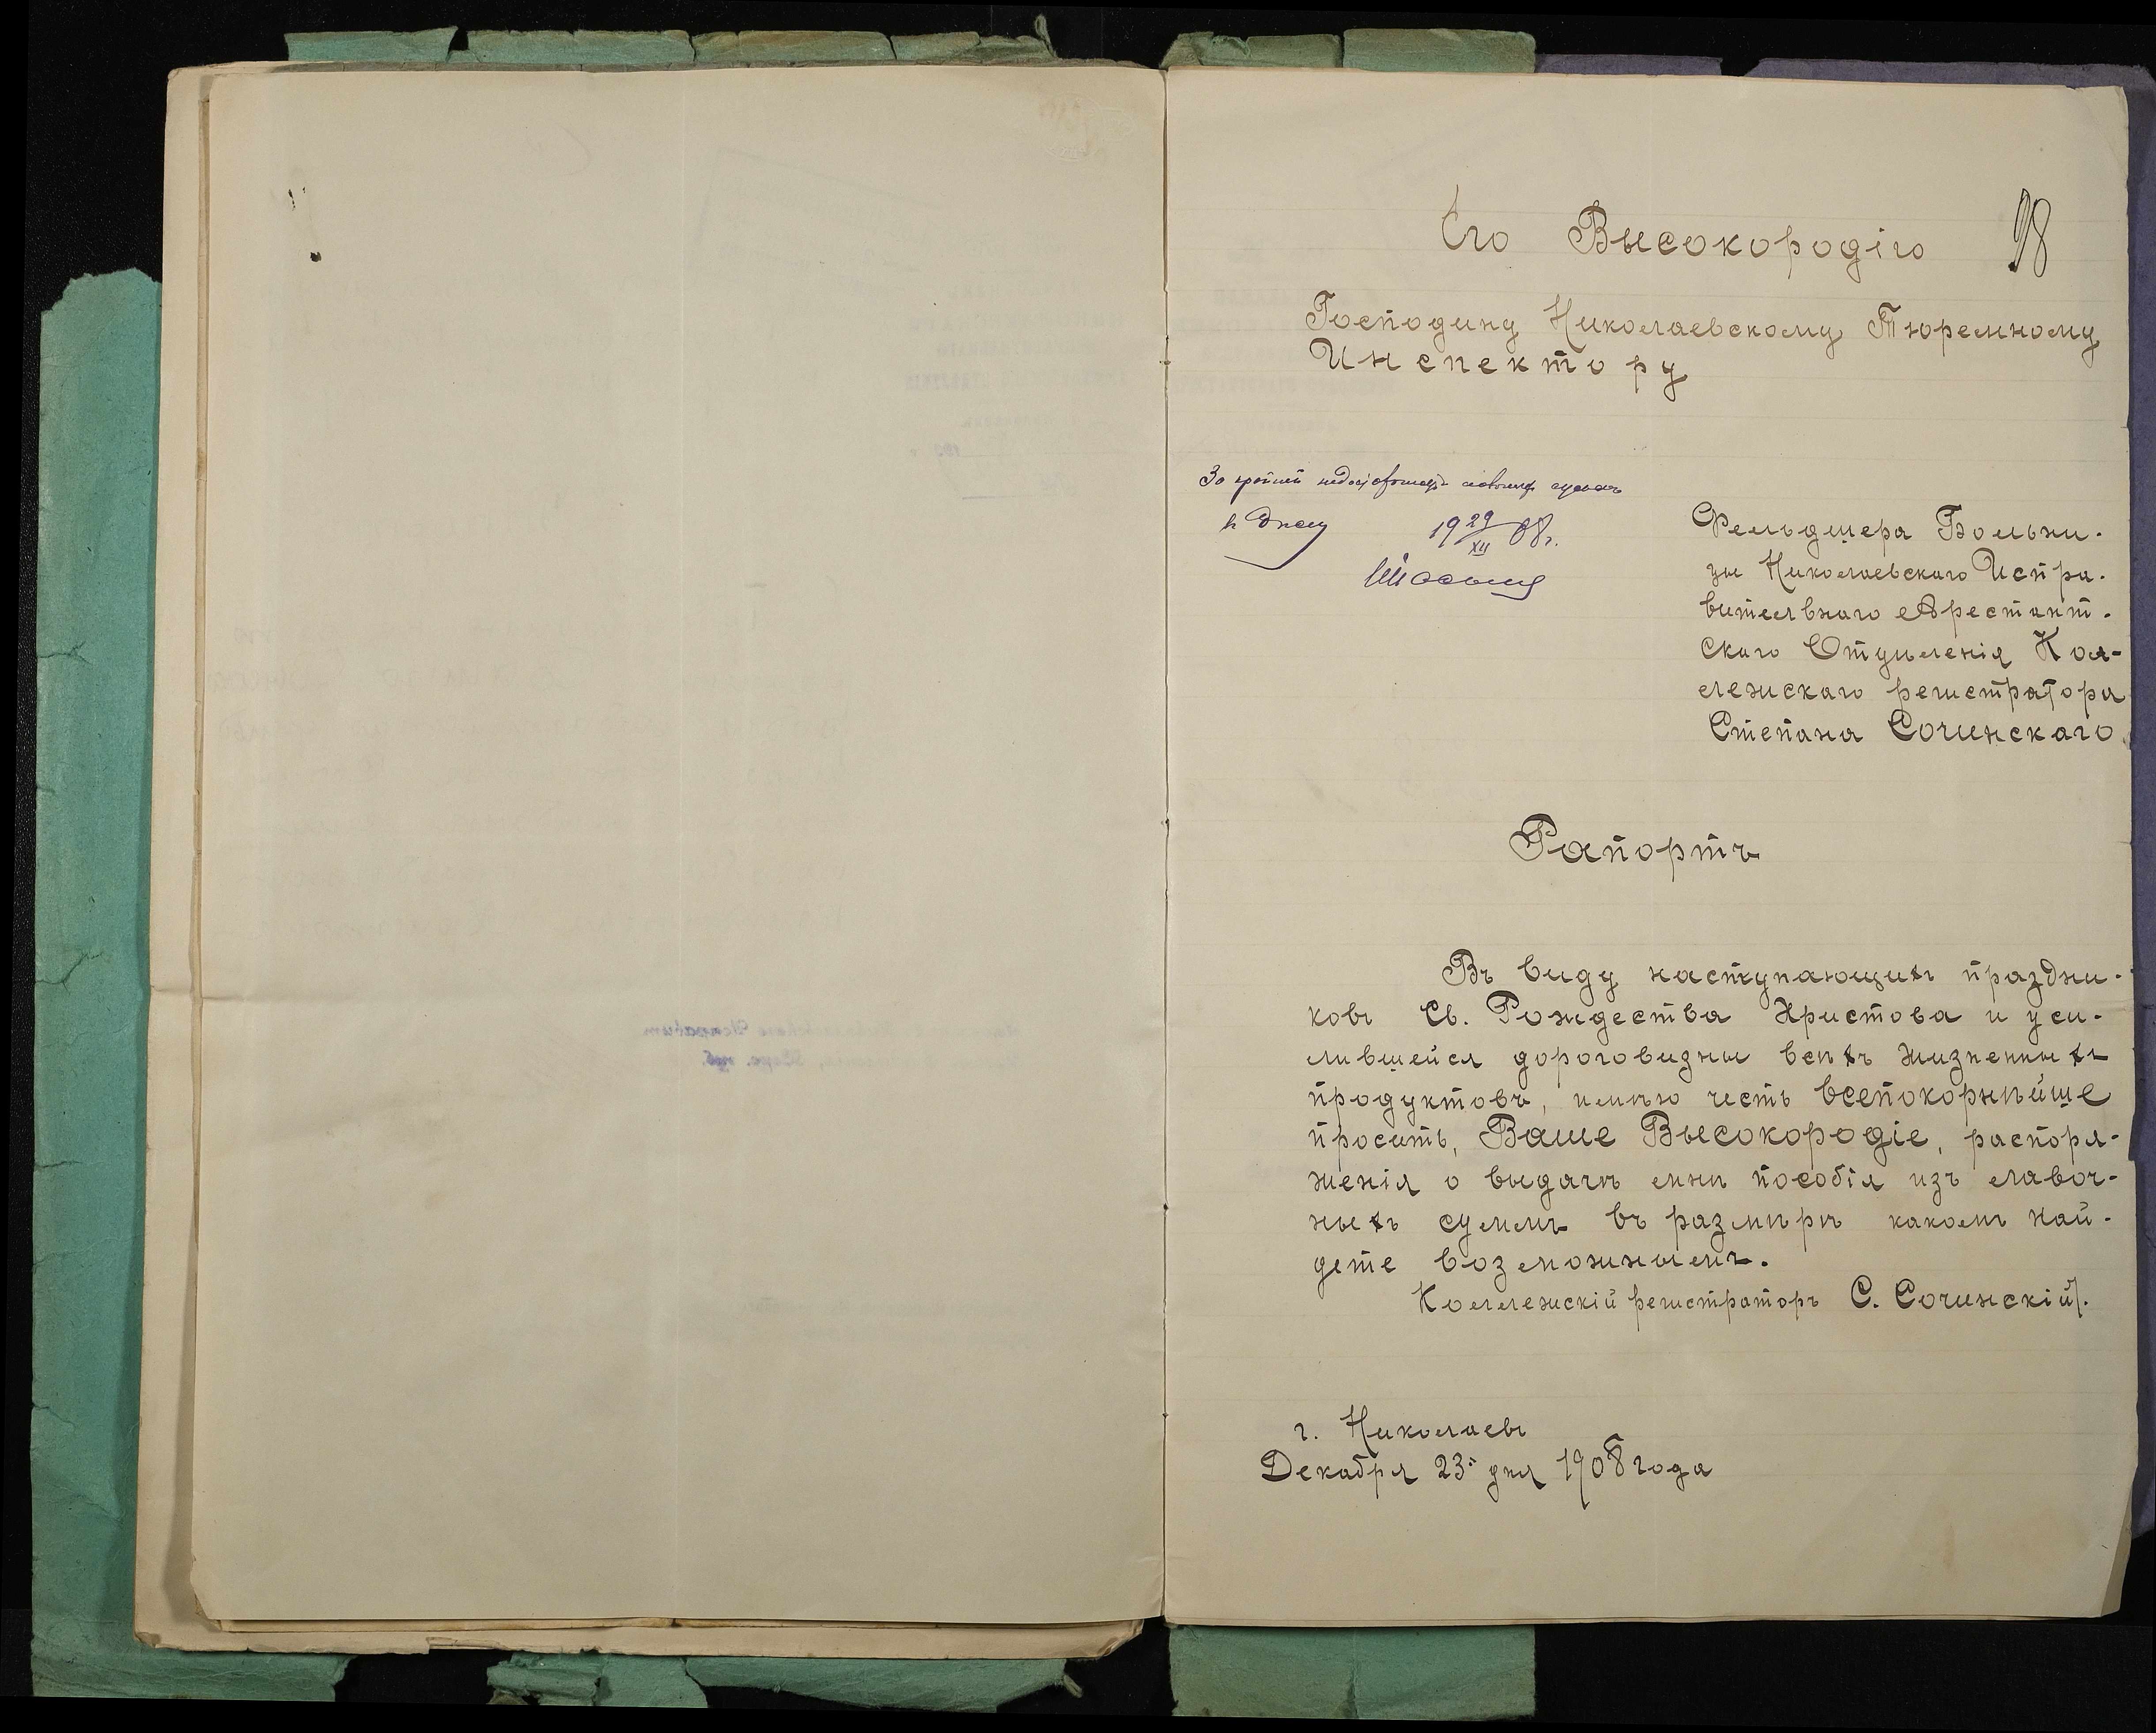 98
Его Высокородію
Господину Николаевскому Тюремному
Инспектору
За крайней
къ дѣлу 19 29/XII 08 г.
Фельдшера Больни-
цы Николаевскаго Испра-
вительнаго Арестант-
скаго Отдѣленія Кол-
лежскаго регистратора
Степана Сочинскаго
Рапортъ
Въ виду наступающихъ праздни-
ковъ Св. Рождества Христова и уси-
лившейся дороговизны всѣхъ жизненныхъ
продуктовъ, имѣю честь всепокорнѣйше
просить, Ваше Высокородіе, распоря-
женія о выдачѣ мнѣ пособія изъ лавоч-
ныхъ суммъ въ размѣрѣ какомъ най-
дете возможнымъ.
Коллежскій регистраторъ С. Сочинскій.
г. Николаевъ
Декабря 23 дня 1908 года